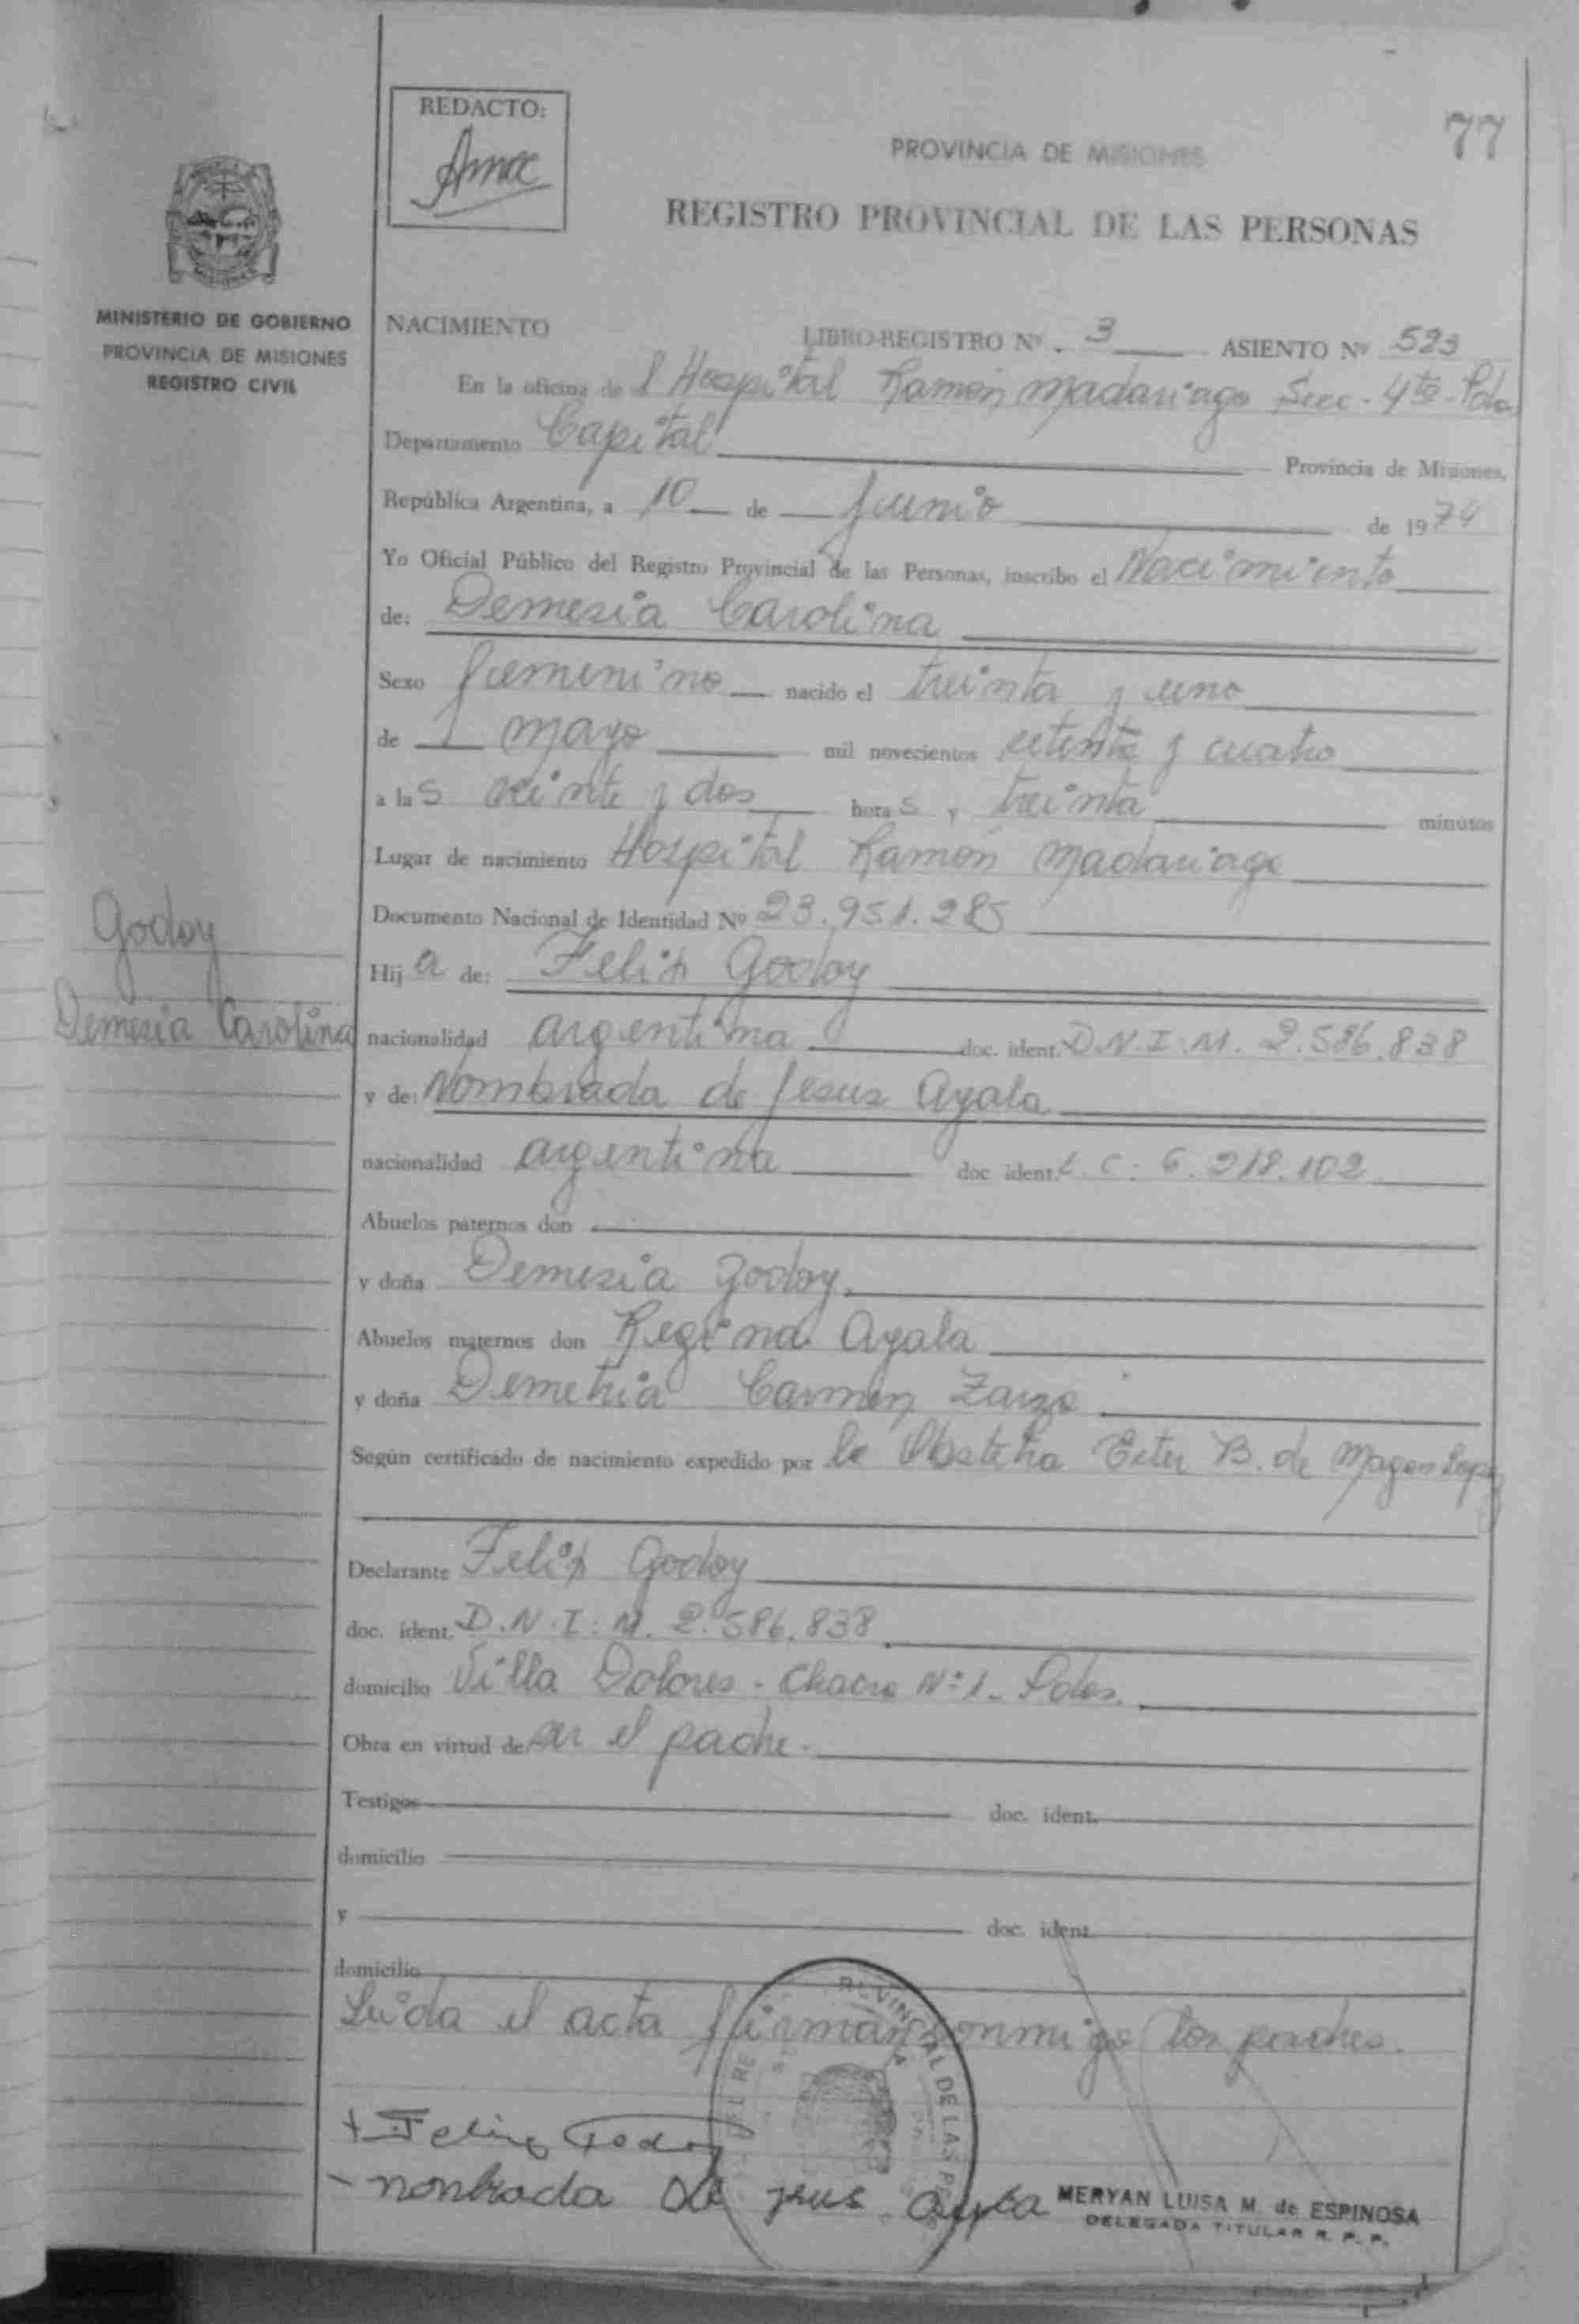 77
REDACTO:
PROVINCIA DE MISIONES
REGISTRO PROVINCIAL DE LAS PERSONAS
MINISTERIO DE GOBIERNO
PROVINCIA DE MISIONES
REGISTRO CIVIL
NACIMIENTO LIBRO-REGISTRO Nº 3 ASIENTO Nº 523
En la oficina del Hospital Ramón Madariaga Secc. 4ta Pdas
Departamento Capital Provincia de Misiones,
República Argentina, a 10 de Junio de 1974
Yo Oficial Público del Registro Provincial de las Personas, inscribo el Nacimiento
de: Demesia Carolina
Sexo femenino nacido el treinta y uno
de mayo mil novecientos setenta y cuatro
a las veinte y dos horas y treinta minutos
Lugar de nacimiento Hospital Ramón Madariaga
Documento Nacional de Identidad Nº 23.951.285
Godoy
Demesia Carolina
Hija de: Felix Godoy
nacionalidad argentina doc. ident. D.N.I.M. 2.586.838
y de: Nombrada de Jesus Ayala
nacionalidad argentina doc ident. L.C. 6.218.102
Abuelos paternos don
y doña Demesia Godoy.
Abuelos maternos don Regina Ayala
y doña Demetria Carmen Zarza
Según certificado de nacimiento expedido por la Obstetra Ester B. de Magan Lopez
Declarante Felix Godoy
doc. ident. D.N.I.M. 2.586.838
domicilio Villa Dolores - Chacra Nº 1 - Pdas.
Obra en virtud de ser el padre.
Testigos doc. ident.
domicilio
y doc. ident.
domicilio
Leida el acta firman conmigo los padres.
Felix Godoy
nonbrada de jesus ayala
MERYAN LUISA M. de ESPINOSA
DELEGADA TITULAR R. P. P.